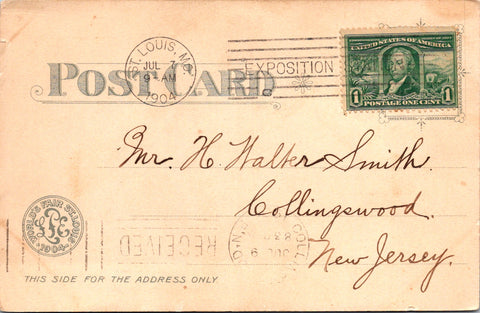 ST. LOUIS, MO.
JUL 7
9 AM
1904
EXPOSITION
POST CARD
UNITED STATES OF AMERICA
1 1
POSTAGE ONE CENT
Mr. H. Walter Smith.
Collingswood.
New Jersey.
WORLD'S FAIR ST. LOUIS
1904
RECEIVED
THIS SIDE FOR THE ADDRESS ONLY.